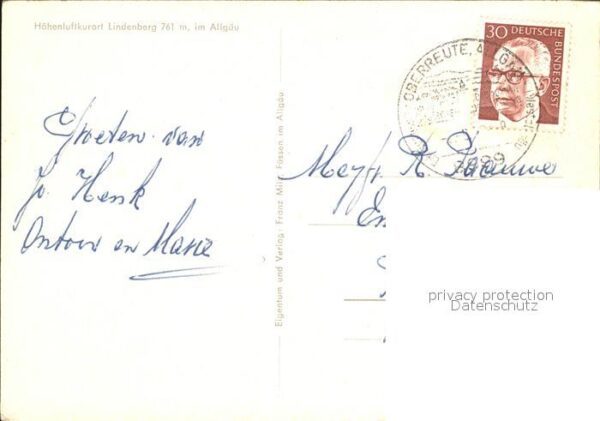 Höhenluftkurort Lindenberg 761 m, im Allgäu
Groeten van
Jo Henk
en Marie
Eigentum und Verlag: Franz Milz, Füssen im Allgäu
30 DEUTSCHE
BUNDESPOST
OBERREUTE, ALLGÄU
8999
Mejfr. R.
En
privacy protection
Datenschutz